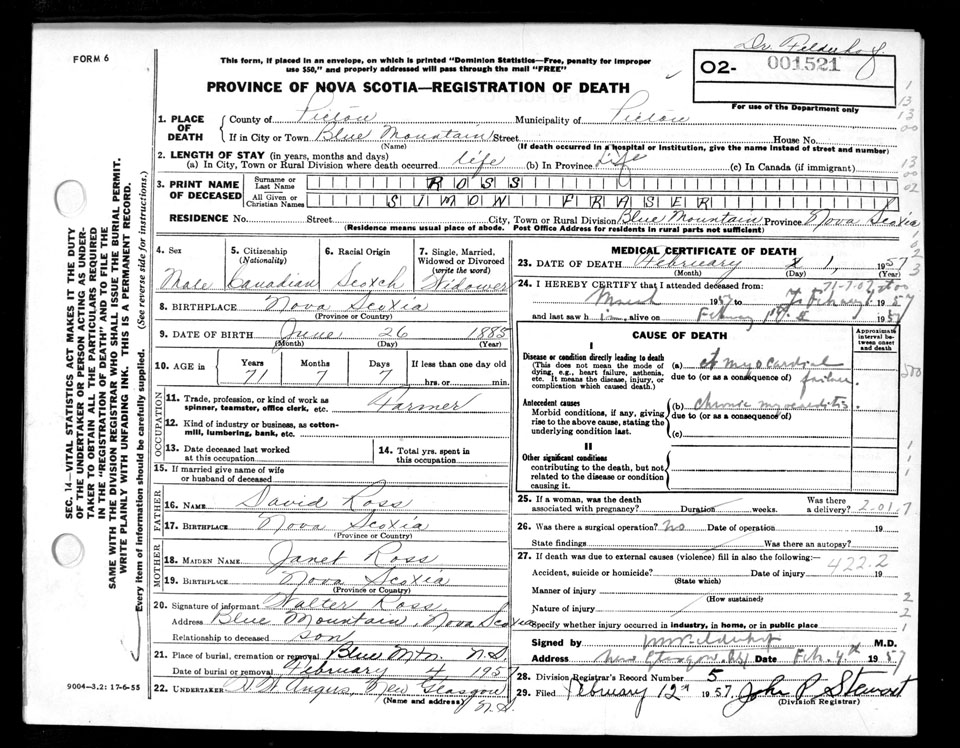 Dr. Felderhof
FORM 6
This form, if placed in an envelope, on which is printed "Dominion Statistics—Free, penalty for improper
use $50," and properly addressed will pass through the mail "FREE"
02- 001521
For use of the Department only
PROVINCE OF NOVA SCOTIA—REGISTRATION OF DEATH
1. PLACE OF DEATH
County of Pictou Municipality of Pictou
If in City or Town Blue Mountain Street House No.
(Name) (If death occurred in a hospital or institution, give the name instead of street and number)
2. LENGTH OF STAY (in years, months and days)
(a) In City, Town or Rural Division where death occurred life (b) In Province Life (c) In Canada (if immigrant)
3. PRINT NAME OF DECEASED
Surname or Last Name ROSS
All Given or Christian Names SIMON FRASER
RESIDENCE No. Street City, Town or Rural Division Blue Mountain Province Nova Scotia
(Residence means usual place of abode. Post Office Address for residents in rural parts not sufficient)
4. Sex Male
5. Citizenship (Nationality) Canadian
6. Racial Origin Scotch
7. Single, Married, Widowed or Divorced (write the word) Widower
8. BIRTHPLACE Nova Scotia
(Province or Country)
9. DATE OF BIRTH June 26 1885
(Month) (Day) (Year)
10. AGE in Years 71 Months 7 Days 7 If less than one day old
hrs. or min.
OCCUPATION
11. Trade, profession, or kind of work as
spinner, teamster, office clerk, etc. Farmer
12. Kind of industry or business, as cotton-
mill, lumbering, bank, etc.
13. Date deceased last worked
at this occupation
14. Total yrs. spent in
this occupation
15. If married give name of wife
or husband of deceased
FATHER
16. NAME David Ross
17. BIRTHPLACE Nova Scotia
(Province or Country)
MOTHER
18. MAIDEN NAME Janet Ross
19. BIRTHPLACE Nova Scotia
(Province or Country)
20. Signature of informant Walter Ross
Address Blue Mountain, Nova Scotia
Relationship to deceased son
21. Place of burial, cremation or removal Blue Mtn. N.S.
Date of burial or removal February 4 1957
22. UNDERTAKER W Angus, New Glasgow
(Name and address) N.S.
MEDICAL CERTIFICATE OF DEATH
23. DATE OF DEATH February 1, 1957
(Month) (Day) (Year)
24. I HEREBY CERTIFY that I attended deceased from:
March 1957 to February 1 1957
and last saw him alive on 1957
CAUSE OF DEATH
Approximate interval between onset and death
I
Disease or condition directly leading to death
(This does not mean the mode of
dying, e.g., heart failure, asthenia,
etc. It means the disease, injury, or
complication which caused death.)
(a) myocardial
due to (or as a consequence of) failure.
Antecedent causes
Morbid conditions, if any, giving
rise to the above cause, stating the
underlying condition last.
(b) chronic myocarditis.
due to (or as a consequence of)
(c)
II
Other significant conditions
contributing to the death, but not
related to the disease or condition
causing it.
25. If a woman, was the death
associated with pregnancy? Duration weeks. Was there
a delivery? 2-01.7
26. Was there a surgical operation? no Date of operation 19
State findings Was there an autopsy?
27. If death was due to external causes (violence) fill in also the following:—
422.2
Accident, suicide or homicide? Date of injury 19
(State which)
Manner of injury
(How sustained)
Nature of injury
Specify whether injury occurred in industry, in home, or in public place
Signed by M.D.
Address New Glasgow Date Feb. 4th 1957
28. Division Registrar's Record Number 5
29. Filed February 12th 1957. John P Stewart
(Division Registrar)
9004-3.2: 17-6-55
SEC. 14—VITAL STATISTICS ACT MAKES IT THE DUTY
OF THE UNDERTAKER OR PERSON ACTING AS UNDER-
TAKER TO OBTAIN ALL THE PARTICULARS REQUIRED
IN THE "REGISTRATION OF DEATH" AND TO FILE THE
SAME WITH THE DIVISION REGISTRAR WHO SHALL ISSUE THE BURIAL PERMIT.
WRITE PLAINLY WITH UNFADING INK. THIS IS A PERMANENT RECORD.
Every item of information should be carefully supplied. (See reverse side for instructions.)